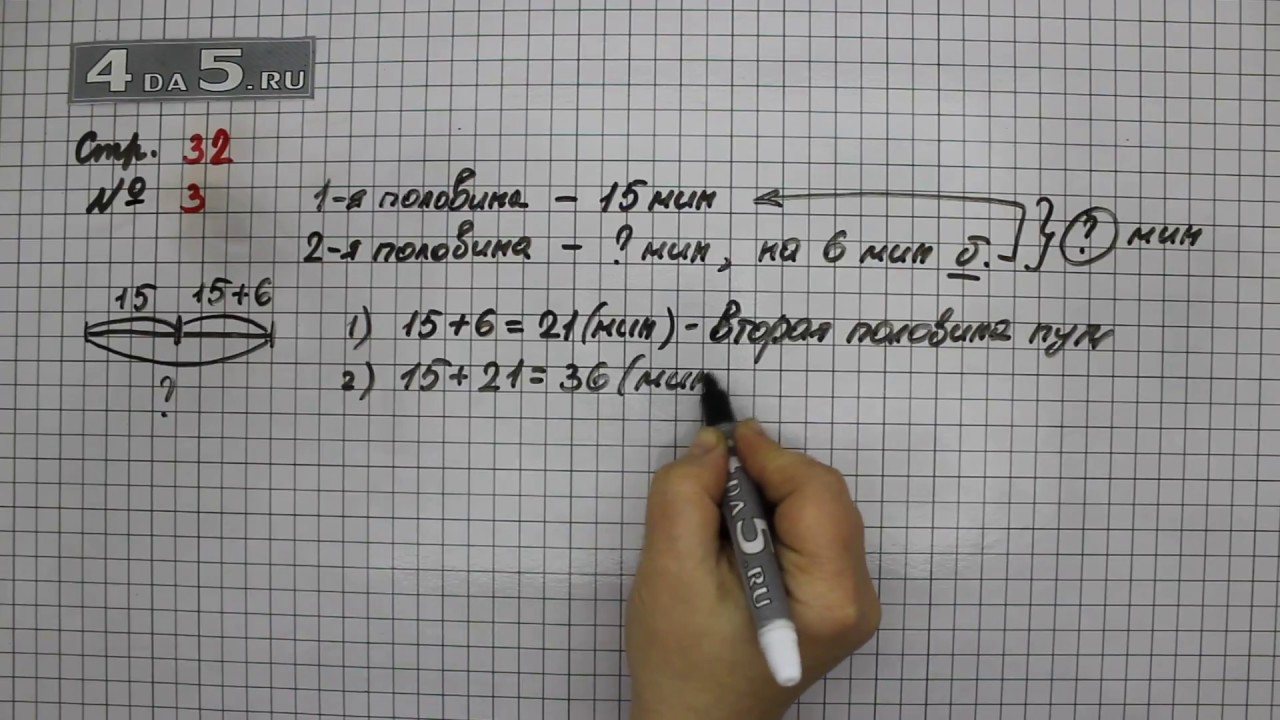 4DA5.RU
Стр. 32
№ 3
1-я половина – 15 мин
2-я половина – ? мин, на 6 мин б. } ? мин
15 15+6
?
1) 15+6=21(мин) - вторая половина пути
2) 15+21=36(мин
DA5.RU